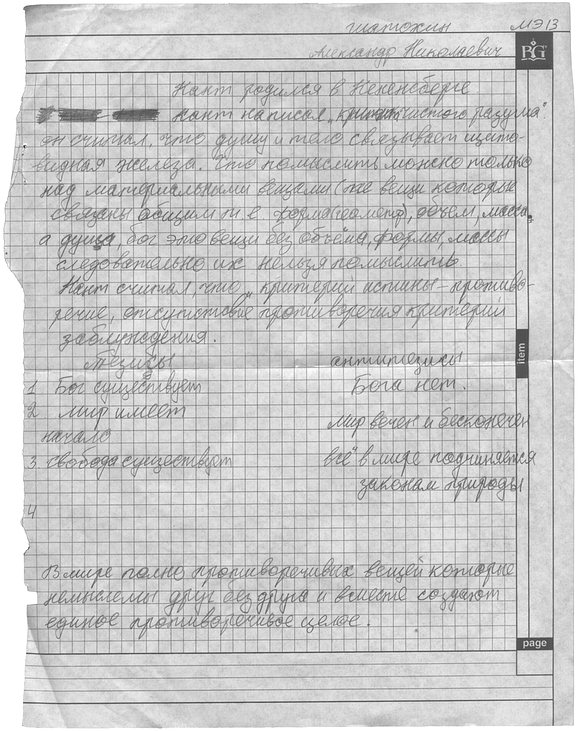 Шатохин МЭ13
Александр Николаевич
BG
Кант родился в Кененсберге
Кант написал „критик чистого разума"
он считал, что душу и тело связывает щито-
видная железа. Что помыслить можно только
над материальными вещами (же вещи которые
связаны общим т е форма(геометр), объем, масса,
а душа, бог это вещи без объёма, формы, массы
следовательно их нельзя помыслить
Кант считал, что „критерий истины - противо-
речие, отсутствие противоречия критерий
заблуждения.
Тезисы антитезисы
1 Бог существует Бога нет.
2 мир имеет
начало мир вечен и бесконечен
item
3 свобода существует всё в мире подчиняется
законам природы
4
В мире полно противоречивых вещей которые
немыслемы друг без друга и вместе создают
единое противоречивое целое.
page